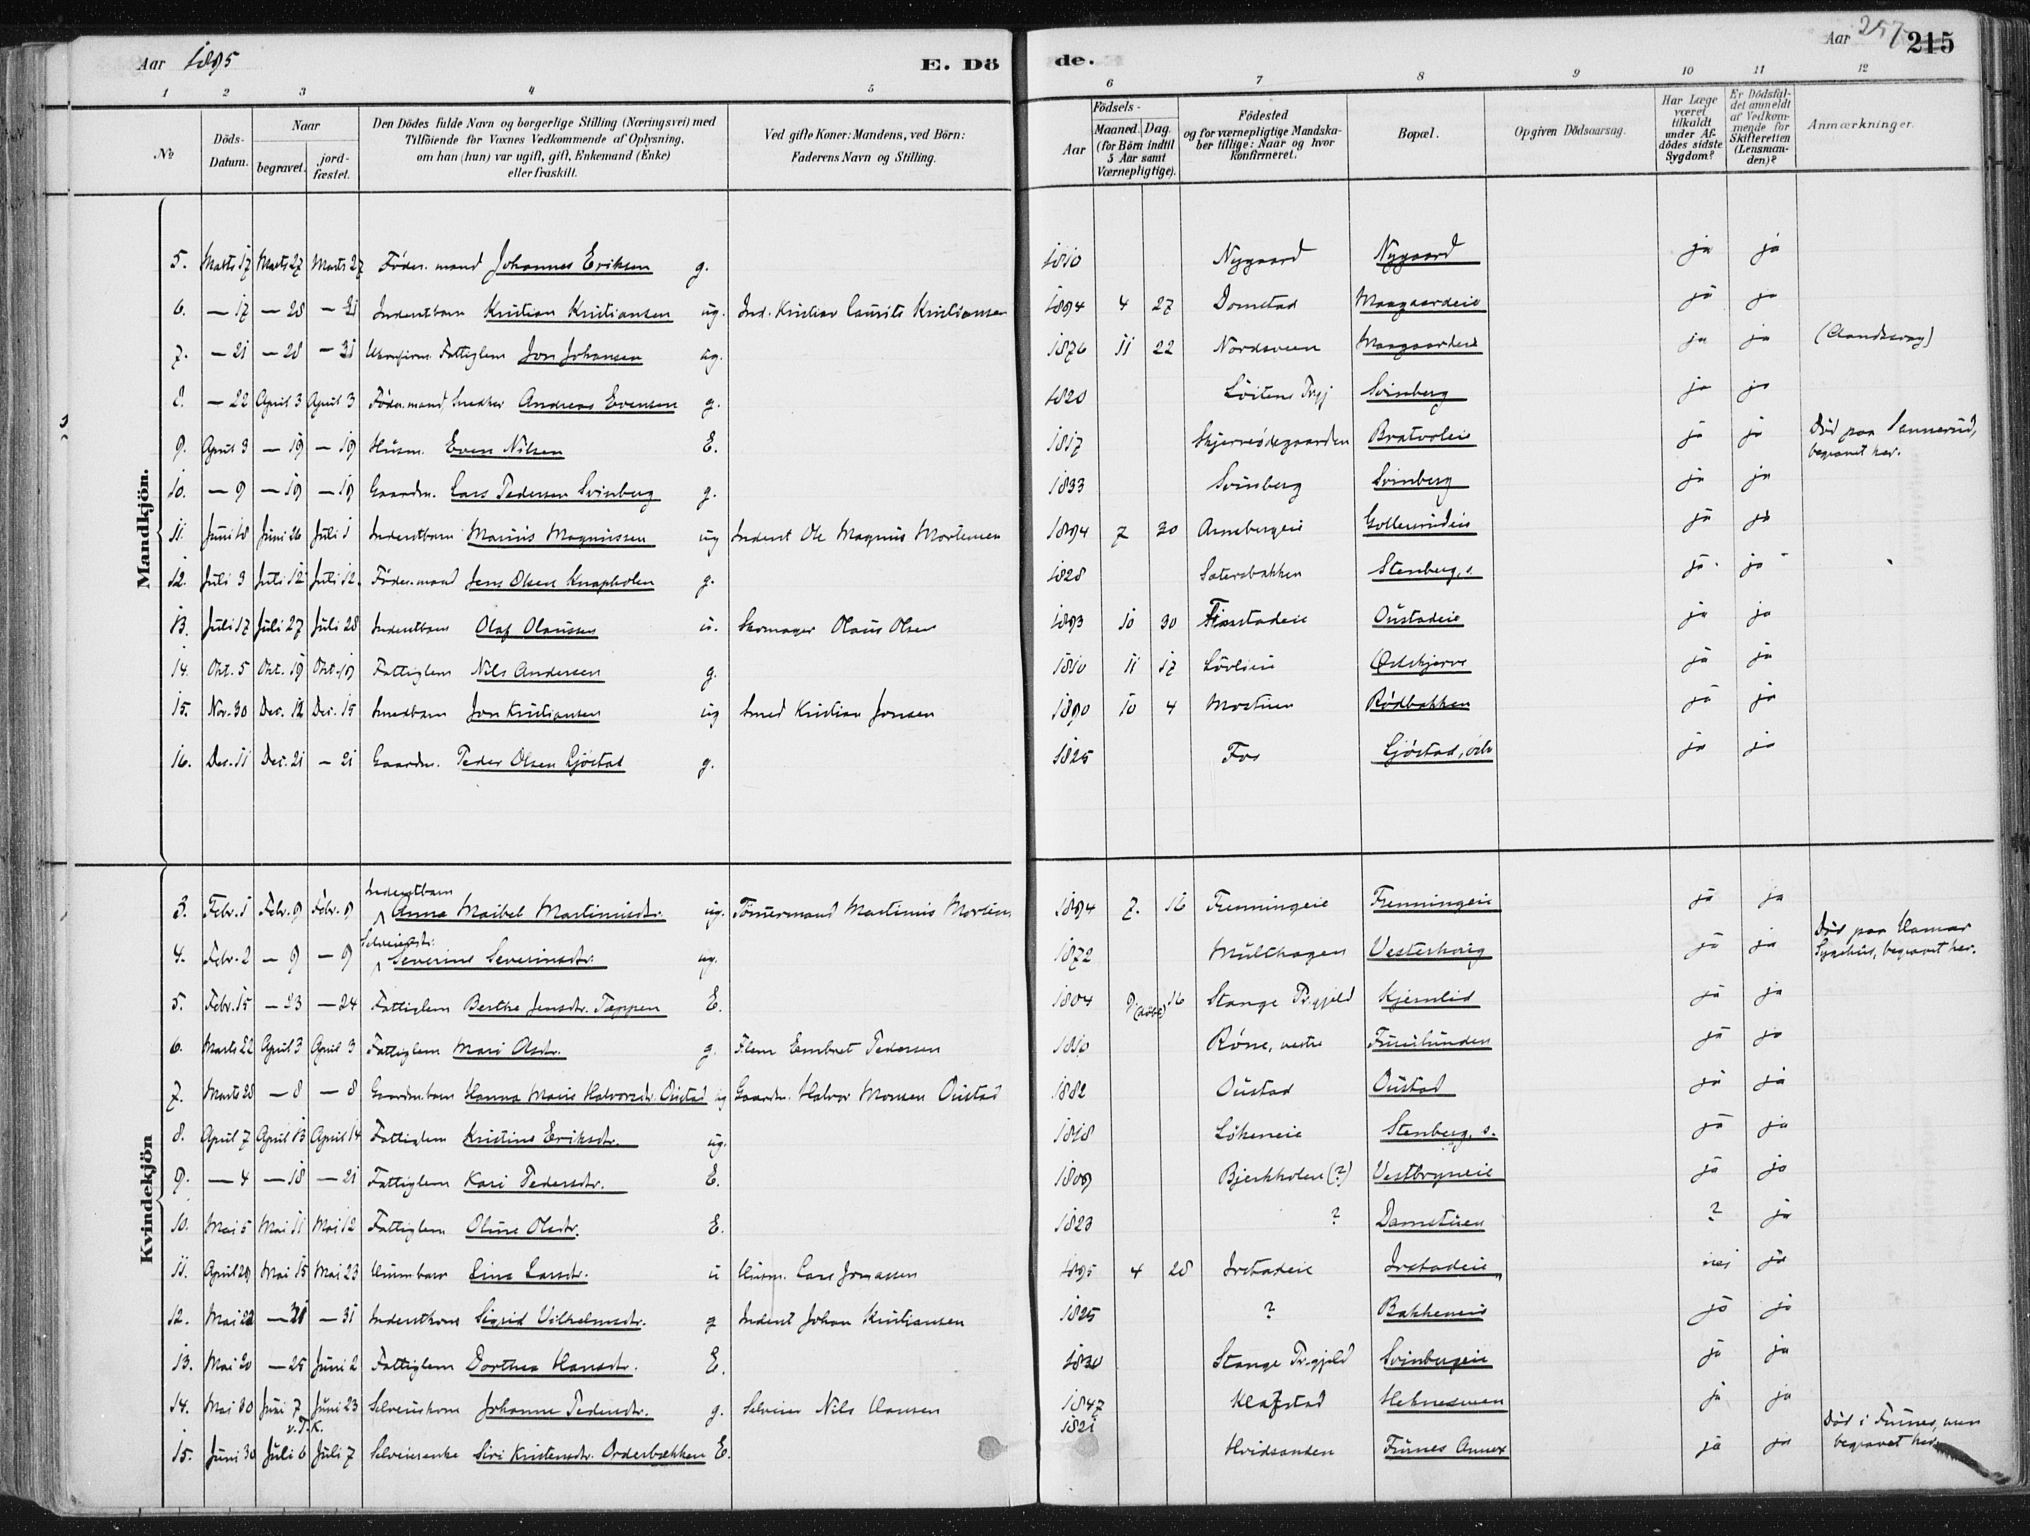 Aar 1895
E. Dö
de.
Aar 257
215
1 2 3 4 5 6 7 8 9 10 11 12
No
Döds-Datum.
Naar
begravet.
jord-fæstet.
Den Dödes fulde Navn og borgerlige Stilling (Næringsvei) med
Tilföiende for Voxnes Vedkommende af Oplysning,
om han (hun) var ugift, gift, Enkemand (Enke)
eller fraskilt.
Ved gifte Koner: Mandens, ved Börn:
Faderens Navn og Stilling.
Aar
Födsels-
Maaned. Dag.
(for Börn indtil
5 Aar samt
Værnepligtige).
Födested
og for værnepligtige Mandska-
ber tillige: Naar og hvor
konfirmeret.
Bopæl.
Opgiven Dödsaarsag.
Har Læge
været
tilkaldt
under Af-
dödes sidste
Sygdom?
Er Dödsfal-
det anmeldt
af Vedkom-
mende for
Skifteretten
(Lensman-
den)?
Anmærkninger.
Mandkjön.
5. Marts 17 Marts 27 Marts 27 Föder.mand Johannes Eriksen g. 1810 Nygaard Nygaard ja ja
6. — 17 — 28 — 31 Inderstbarn Kristian Kristiansen ug. Ind. Kristian Laurits Kristiansen 1894 4 27 Domstad Maagaardeie ja ja
7. — 21 — 28 — 31 Ukonfirm. Fattiglem Jon Johansen ug. 1876 11 22 Nordsveen Maagaardeie ja ja
8. — 22 April 3 April 3 Föder.mand Snedker Andreas Evensen g. 1820 Löitens Svinberg ja ja
9. April 3 — 19 — 19 Husm. Even Nilsen E. 1817 Skjerveödegaarden Bratvoleie ja ja Död paa begravet her.
10. — 9 — 19 — 19 Gaardm. Lars Pedersen Svinberg g. 1833 Svinberg Svinberg ja ja
11. Juni 18 Juni 26 Juli 1 Inderstbarn Marius Magnussen ug Inderst Ole Magnus Mortensen 1894 7 30 Arnebergeie ja ja
12. Juli 3 Juli 12 Juli 12. Föder.mand Jens Olsen Knapholen g. 1828 Sætersbakken Stenberg, s. ja ja
13. Juli 17 Juli 27 Juli 28 Inderstbarn Olaf Olaussen u. Skomager Olaus Olsen 1893 10 30 Finstadeie Oustadeie ja ja
14. Okt. 5 Okt. 19 Okt. 19 Fattiglem Nils Andersen g. 1810 11 17 Lövlieie Ødekjerve ja ja
15. Nov. 30 Dec. 12 Dec. 15 Smedbarn Jon Kristiansen ug Smed Kristian Jonsen 1890 10 4 Mostuen Rödbakken ja ja
16. Dec. 11 Dec. 21 — 21 Gaardm. Peder Olsen Gjöstad g. 1825 Fos Gjöstad, ja ja
Kvindekjön
3. Febr. 1 Febr. 9 Febr. 9 Inderstbarn Anna Maibel Martinusdtr. ug. Tömmermand Martinus Mortens 1894 7. 16 Frenningeie Frenningeie ja ja
4. Febr. 2 — 9 — 9 Selveierdtr. Severine Severinsdtr. ug. 1872 Multhagen Vesterhaug ja ja Död paa Hamar Sygehus, begravet her.
5. Febr. 15 — 23 — 24 Fattiglem Berthe Jensdtr. Tæppen E. 1804 9 (döbt) 16 Stange Pr.gjeld Kjernlid ja ja
6. Marts 22 April 3 April 3 Fattiglem Mari Olsdtr. g. Flem Embret Pedersen 1810 Röne, vestre Furulunden ja ja
7. Marts 28 — 8 — 8 Gaardm.barn Hanna Marie Halvorsdtr. Oustad ug Gaardm. Halvor Monsen Oustad 1882 Oustad Oustad ja ja
8. April 7 April 13 April 14 Fattiglem Kristine Eriksdtr. ug. 1818 Lökeneie Stenberg, s. ja ja
9. — 4 — 18 — 21 Fattiglem Kari Pedersdtr. E. 1809 Bjerkholen (?) Vestbryneie ja ja
10. Mai 5 Mai 11 Mai 12 Fattiglem Oline Olsdtr. E. 1823 ? Damstuen ? ja
11. April 29 Mai 15 Mai 23 Husm.barn Lina Larsdtr. u Husm. Lars Jonassen 1895 4 28 Irstadeie Irstadeie nei ja
12. Mai 22 — 31 — 31 Inderstkone Sigrid Vilhelmsdtr. g Inderst Johan Kristiansen 1825 ? Bakkeneie ja ja
13. Mai 20 — 25 Juni 2 Fattiglem Dorthea Hansdtr. E. 1830 Stange Pr.gjeld Svinbergeie ja ja
14. Mai 30 Juni 7 Juni 23 Selveierkone Johanne Pedersdtr. g. Selveier Nils Hansen 1847 Klafstad Helnesveen ja ja
v.T.K.
15. Juni 30 Juli 6 Juli 7 Selveierenke Siri Kristensdtr. Orderbækken E. 1821 Hvidsanden Furnes Annex ja ja Död i Furnes, men begravet her.